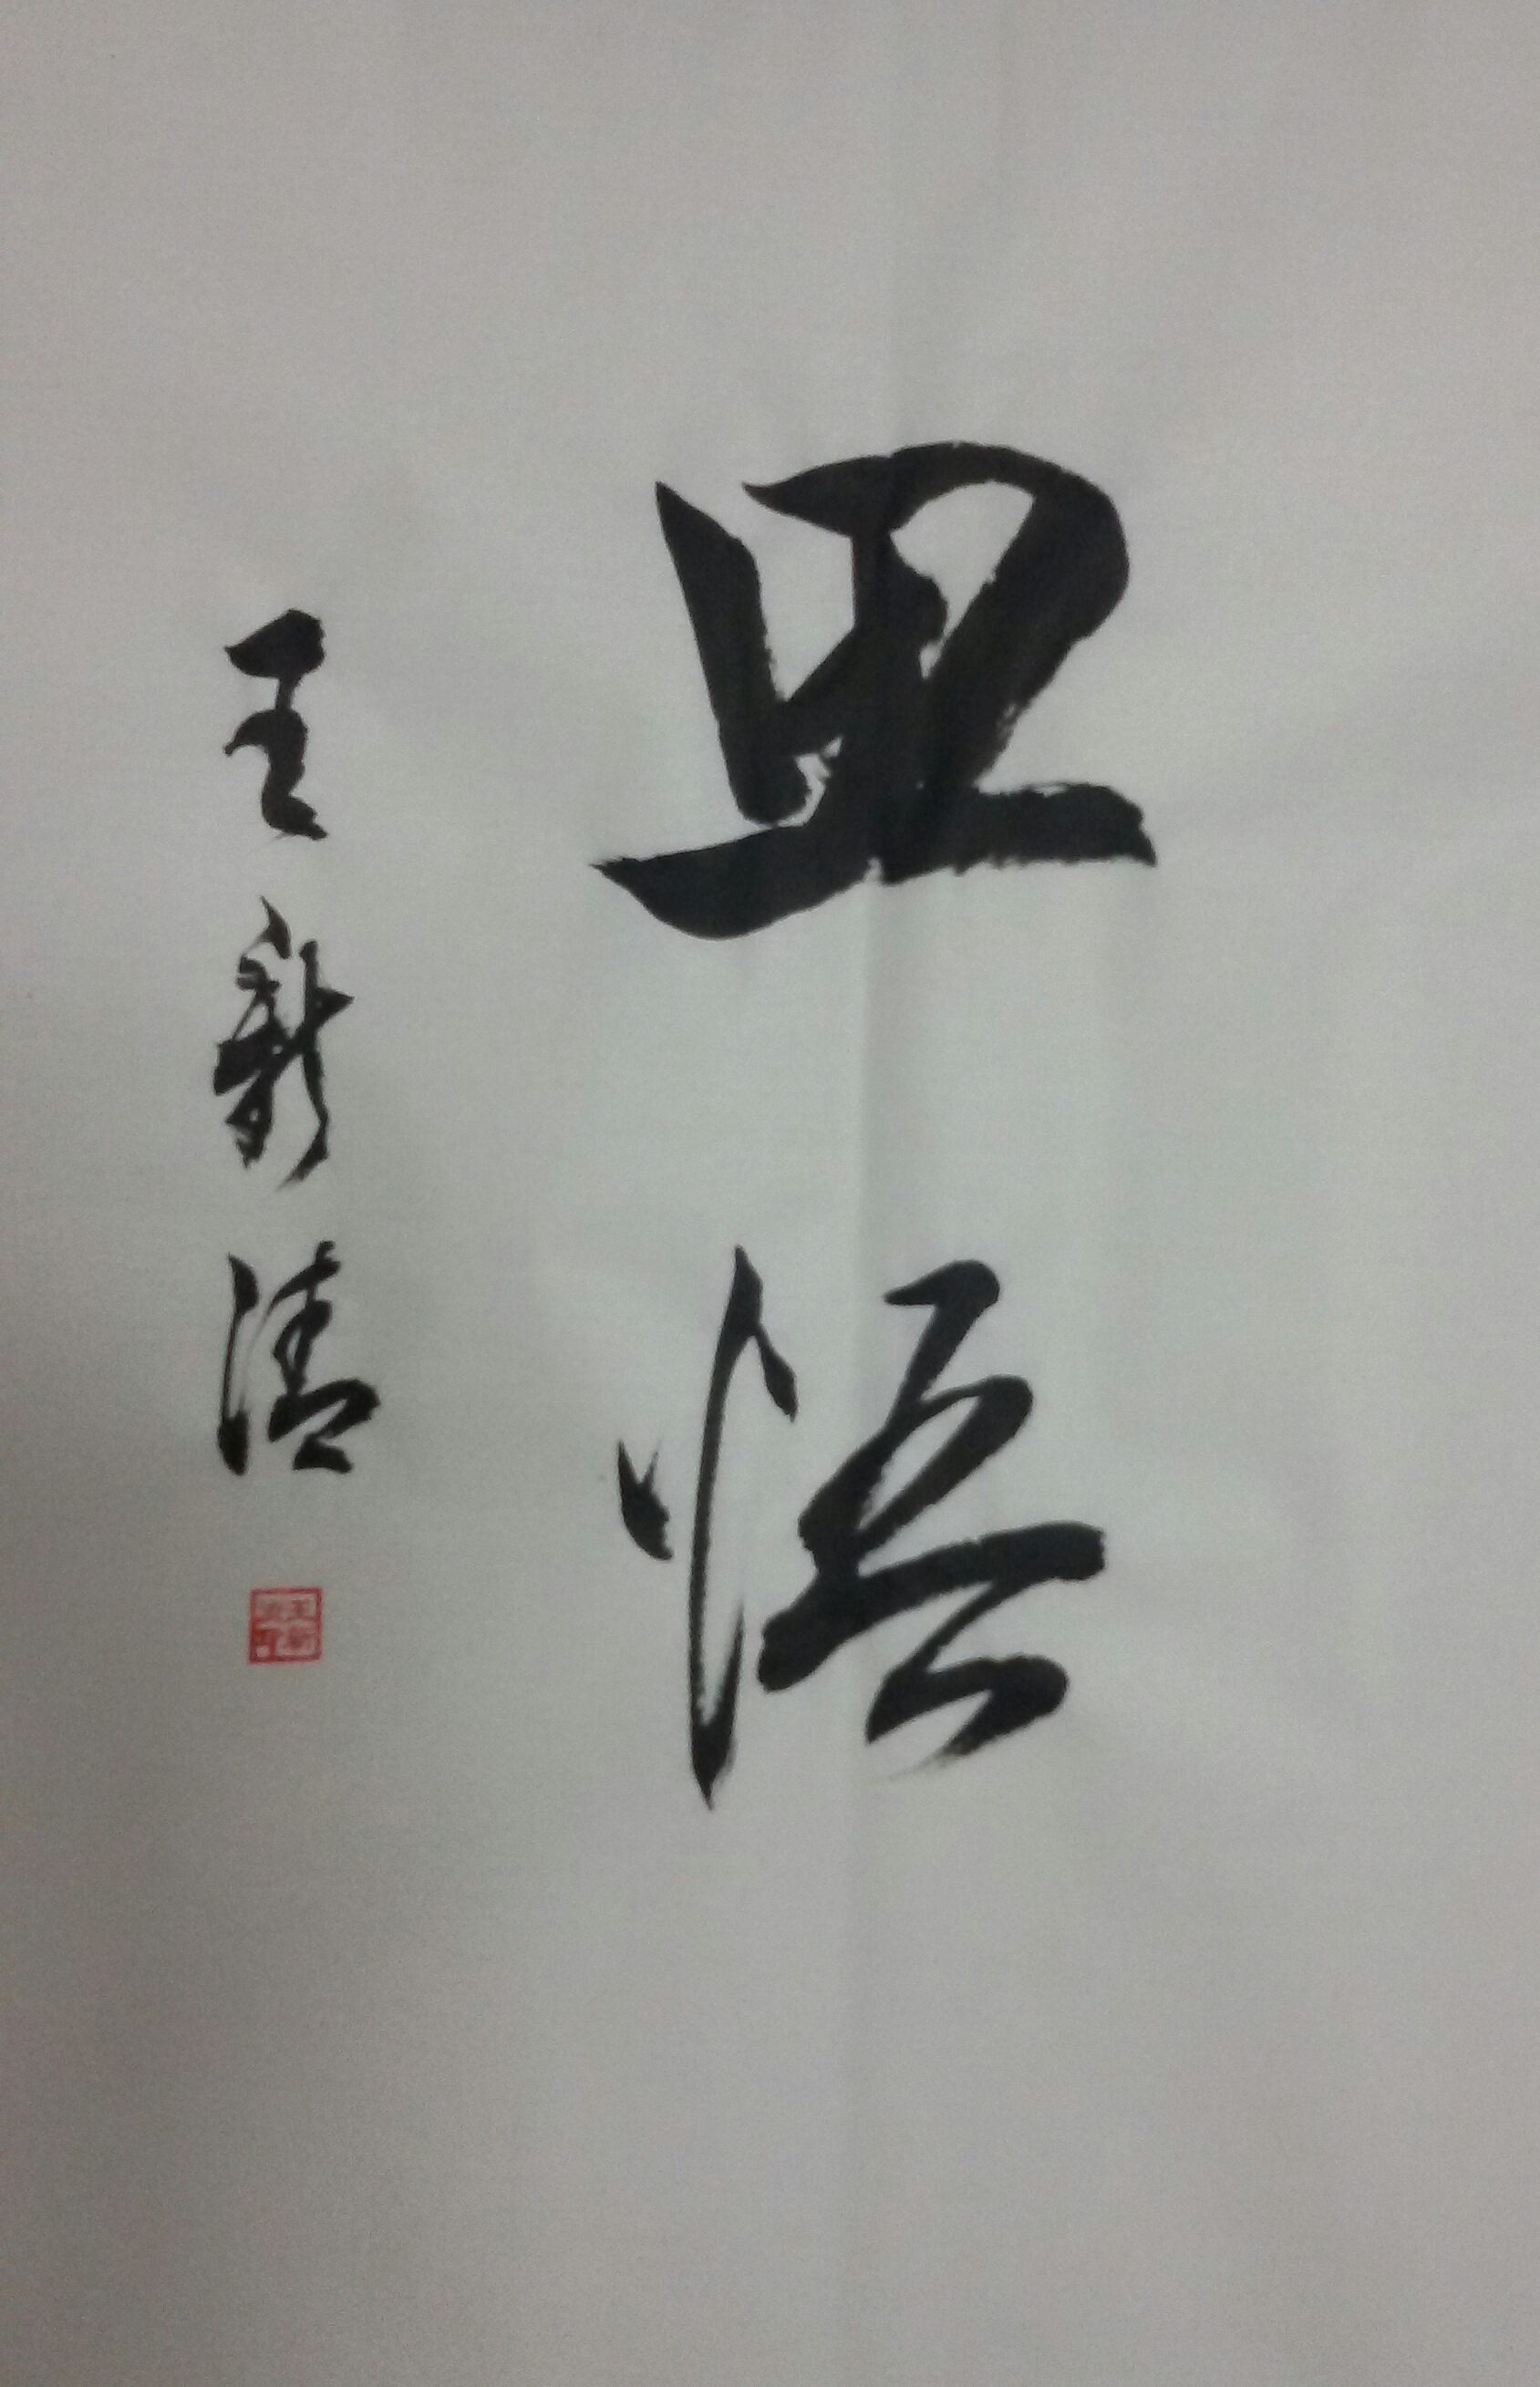 思悟
王新清